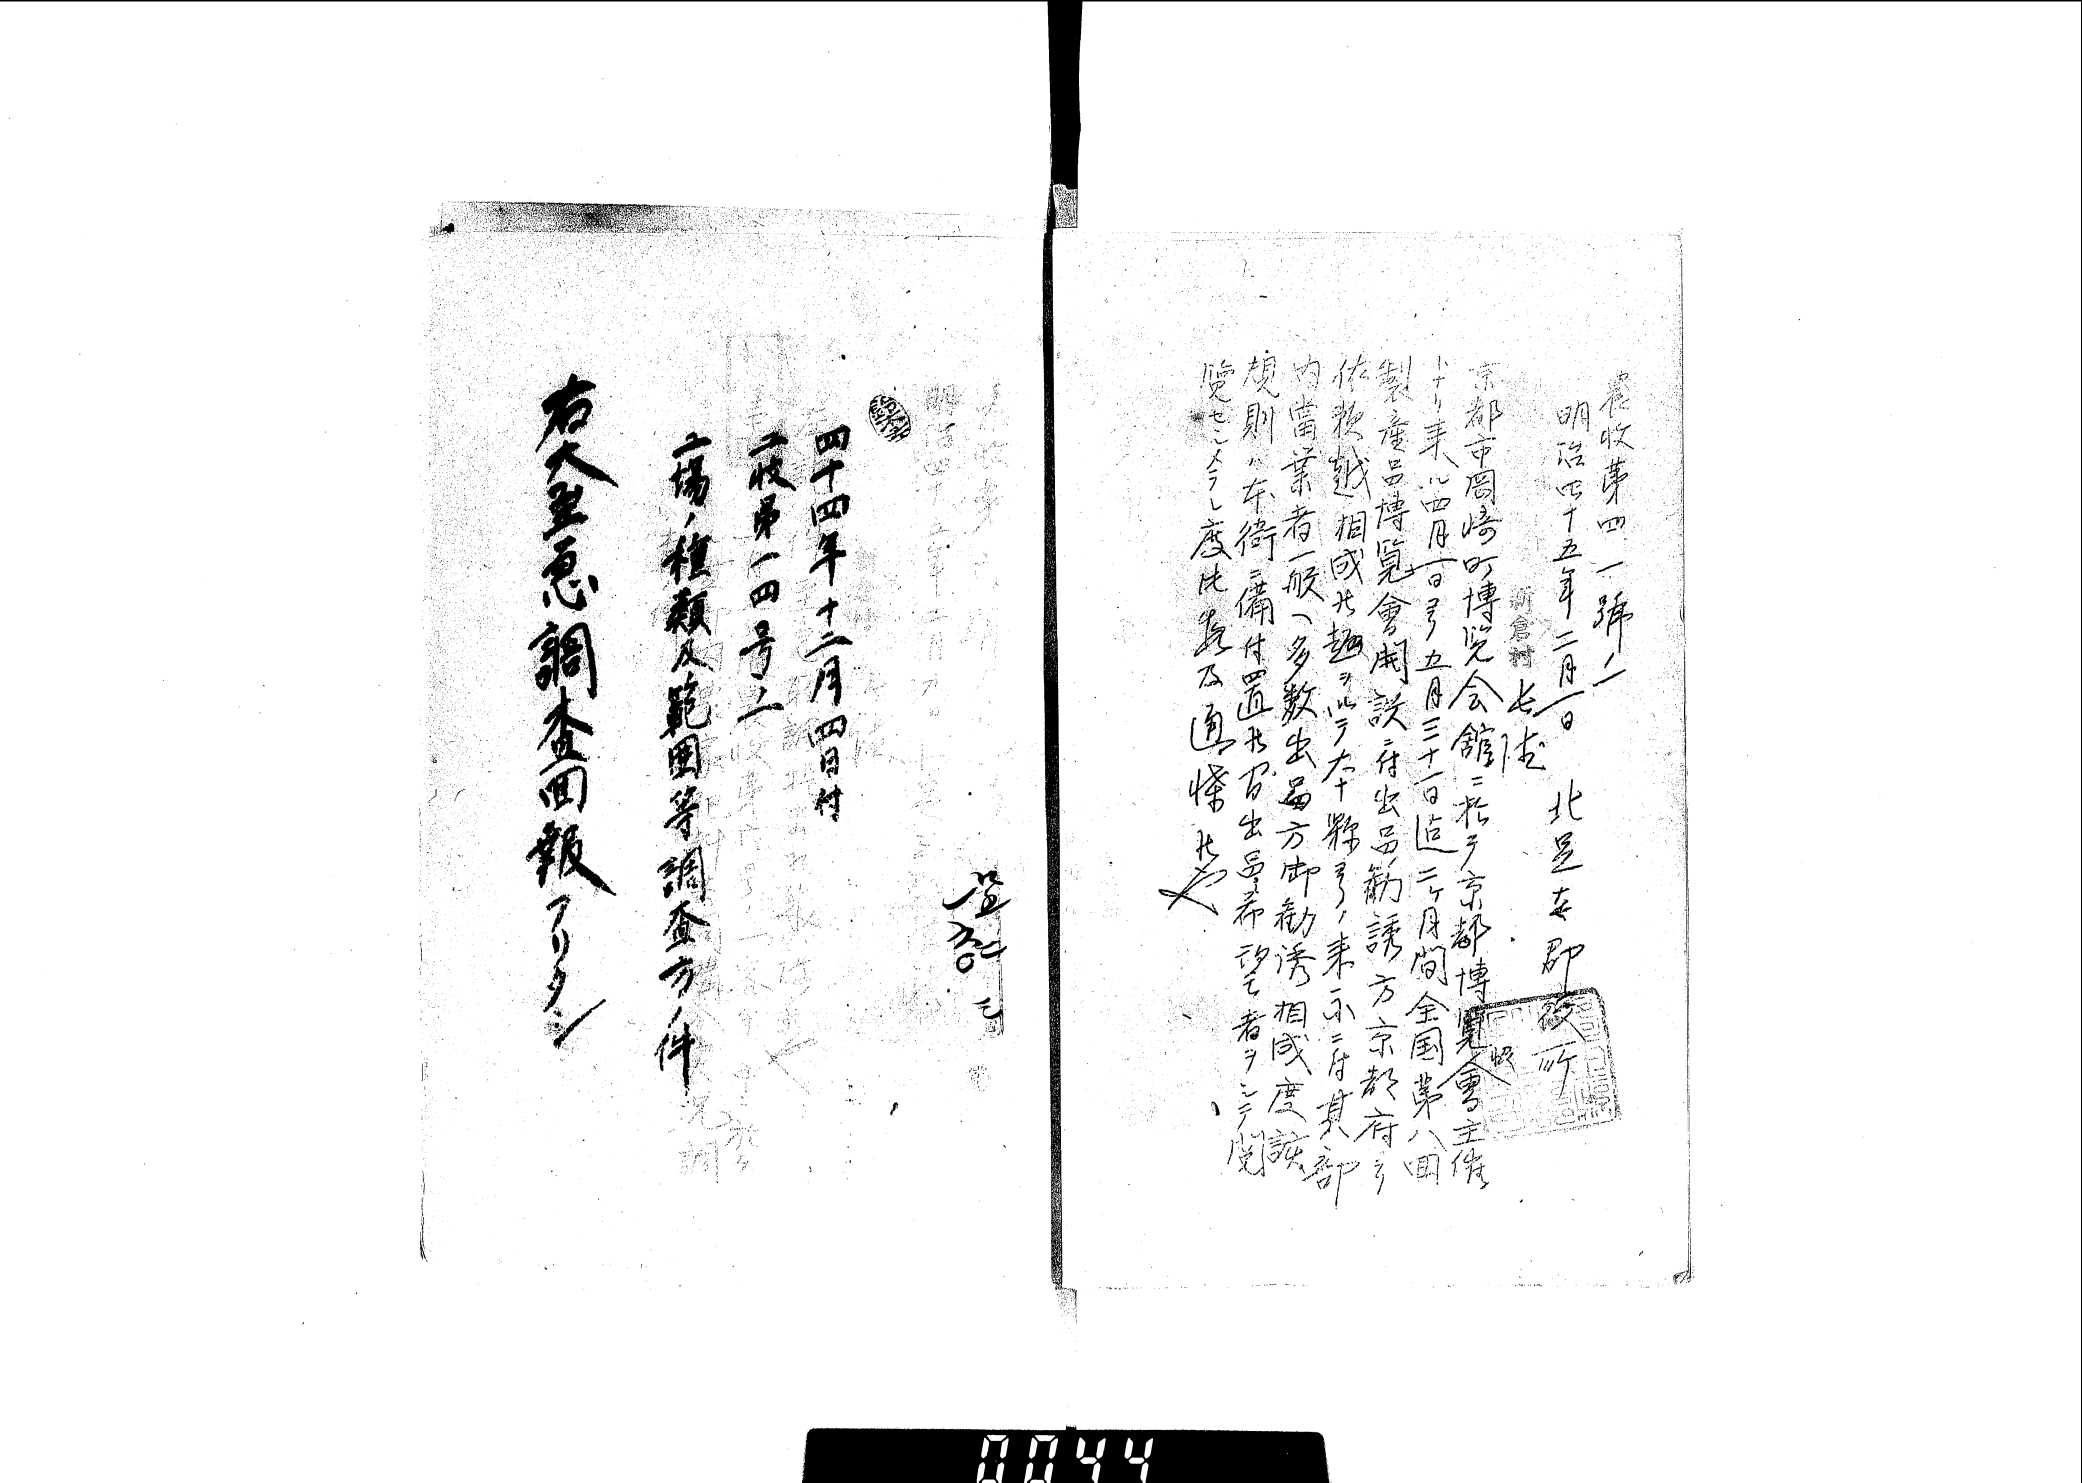 農收第四一號ノ一
明治四十五年二月一日 北足立郡役所
新倉村長殿
京都市岡崎町博覧会館ニ於テ京都博覽會主催
トナリ来ル四月一日ヨリ五月三十一日迠二ヶ月間全国第八回
製産品博覧會開設ニ付出品勧誘方京都府ヨリ
依頼越相成候趣ヲ以テ本縣ヨリノ来示ニ付其部
内當業者一般ヘ多数出品方御勧誘相成度該
規則ハ本衙ニ備付置候間出品希望者ヲシテ閲
覧セシメラレ度此義及通牒候也
四十四年十二月四日付
工收第一四号ノ二
工場ノ種類及範囲等調査方ノ件
右大至急調査回報アリタシ
0044